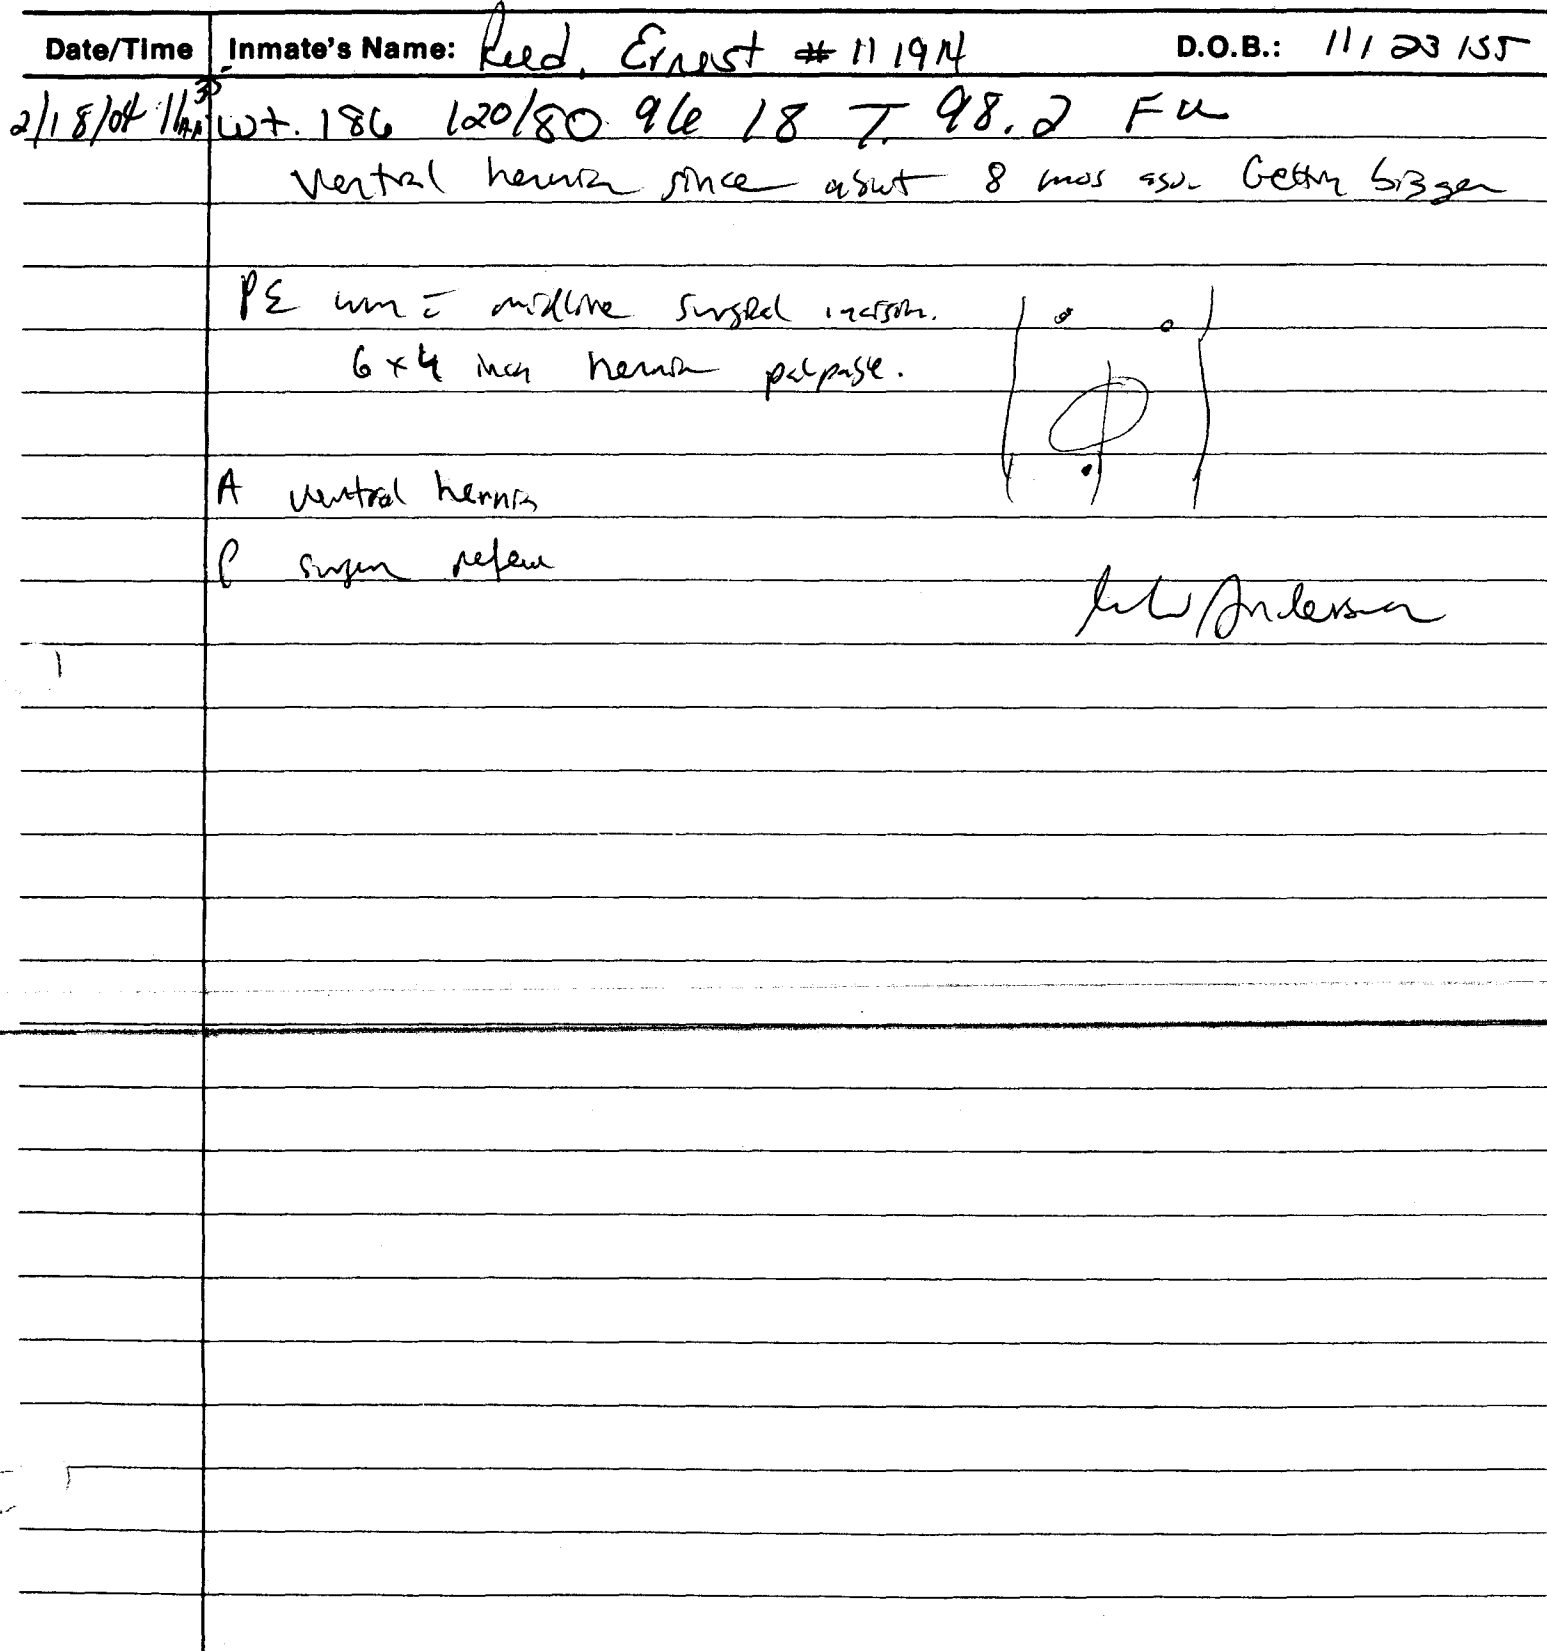 Date/Time Inmate's Name: Reed, Ernest # 111914 D.O.B.: 11/23/55
2/18/04 11:30 AM wt. 186 120/80 96 18 T. 98.2 Fu
Ventral hernia since about 8 mos ago. Getting bigger
PE wm c midline surgical incision.
6 x 4 inch hernia palpable.
A ventral hernia
P surgery referral
Anderson